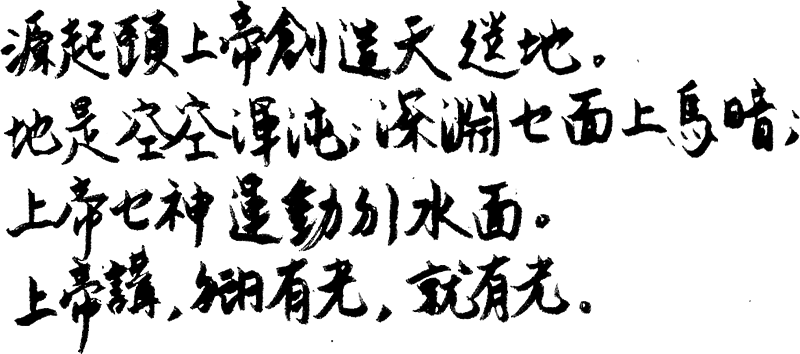 源起頭上帝創造天地。
地是空空渾沌;深淵乜面上烏暗;
上帝乜神運動水面。
上帝講,有光,就有光。